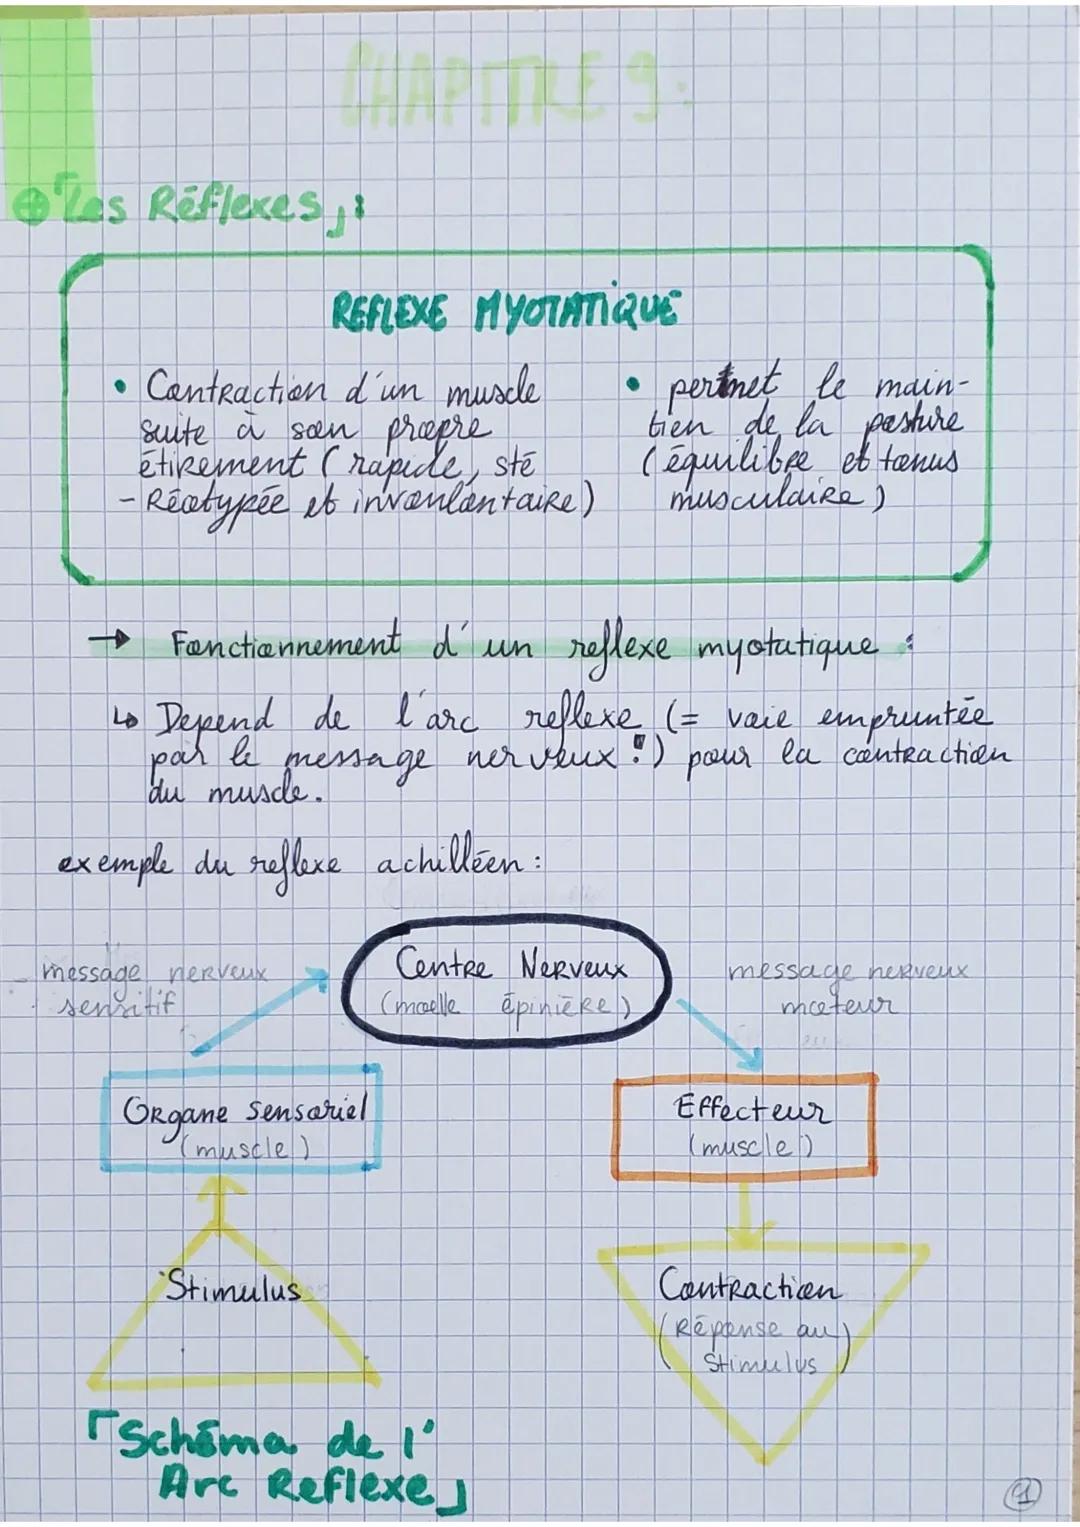 CHAPITRE 9:
⊕「Les Réflexes」:
REFLEXE MYOTATIQUE
• Contraction d'un muscle
suite à son propre
étirement (rapide, sté
-Réotypée et involontaire)
• permet le main-
tien de la posture
(équilibre et tonus
musculaire)
→ Fonctionnement d'un reflexe myotatique :
↳ Depend de l'arc reflexe (= voie empruntée
par le message nerveux !) pour la contraction
du muscle.
exemple du reflexe achilléen :
message nerveux
sensitif
Centre Nerveux
(moelle épinière)
message nerveux
moteur
Organe Sensoriel
(muscle)
Effecteur
(muscle)
Stimulus
Contraction
(Réponse au
Stimulus)
「Schéma de l'
Arc Reflexe」
1